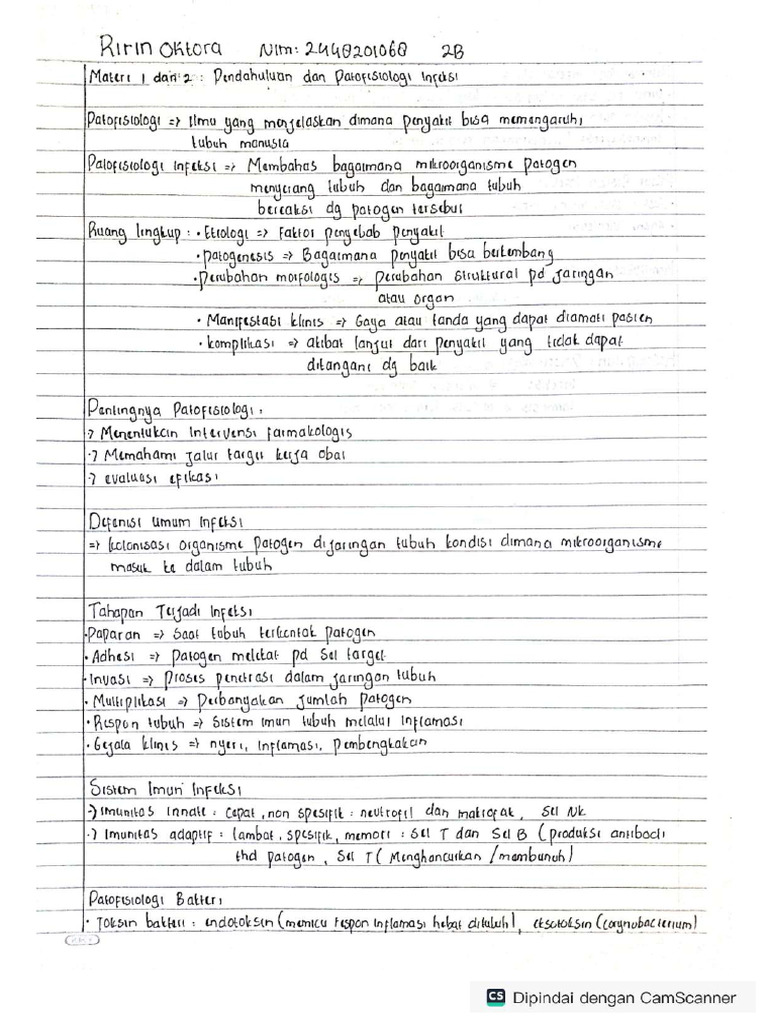 Ririn Oktora Nim: 2448201060 2B
Materi 1 dan 2 : Pendahuluan dan Patofisiologi Infeksi
Patofisiologi => Ilmu yang menjelaskan dimana penyakit bisa memengaruhi
tubuh manusia
Patofisiologi Infeksi => Membahas bagaimana mikroorganisme patogen
menyerang tubuh dan bagaimana tubuh
bereaksi dg patogen tersebut
Ruang lingkup : • Etiologi => Faktor penyebab penyakit
• patogenesis => Bagaimana penyakit bisa berkembang
• perubahan morfologis => perubahan struktural pd jaringan
atau organ
• Manifestasi klinis => Gaya atau tanda yang dapat diamati pasien
• komplikasi => akibat lanjut dari penyakit yang tidak dapat
ditangani dg baik
Pentingnya Patofisiologi :
-> Menentukan intervensi farmakologis
-> Memahami jalur target kerja obat
-> evaluasi efikasi
Defenisi Umum Infeksi
=> kolonisasi organisme patogen dijaringan tubuh kondisi dimana mikroorganisme
masuk ke dalam tubuh
Tahapan Terjadi Infeksi
• Paparan => Saat tubuh terkontak patogen
• Adhesi => patogen melekat pd sel target
• Invasi => Proses penetrasi dalam jaringan tubuh
• Multiplikasi => Perbanyakan jumlah patogen
• Respon tubuh => Sistem imun tubuh melalui inflamasi
• Gejala klinis => nyeri, inflamasi, pembengkakan
Sistem Imun Infeksi
-> Imunitas innate : cepat, non spesifik : neutrofil dan makrofak, sel NK
-> Imunitas adaptif : lambat, spesifik, memori : sel T dan Sel B (produksi antibodi
thd patogen, Sel T ( Menghancurkan /membunuh)
Patofisiologi Bakteri
• Toksin bakteri : endotoksin (memicu respon inflamasi hebat ditubuh), eksotoksin (corynobacterium)
CS Dipindai dengan CamScanner